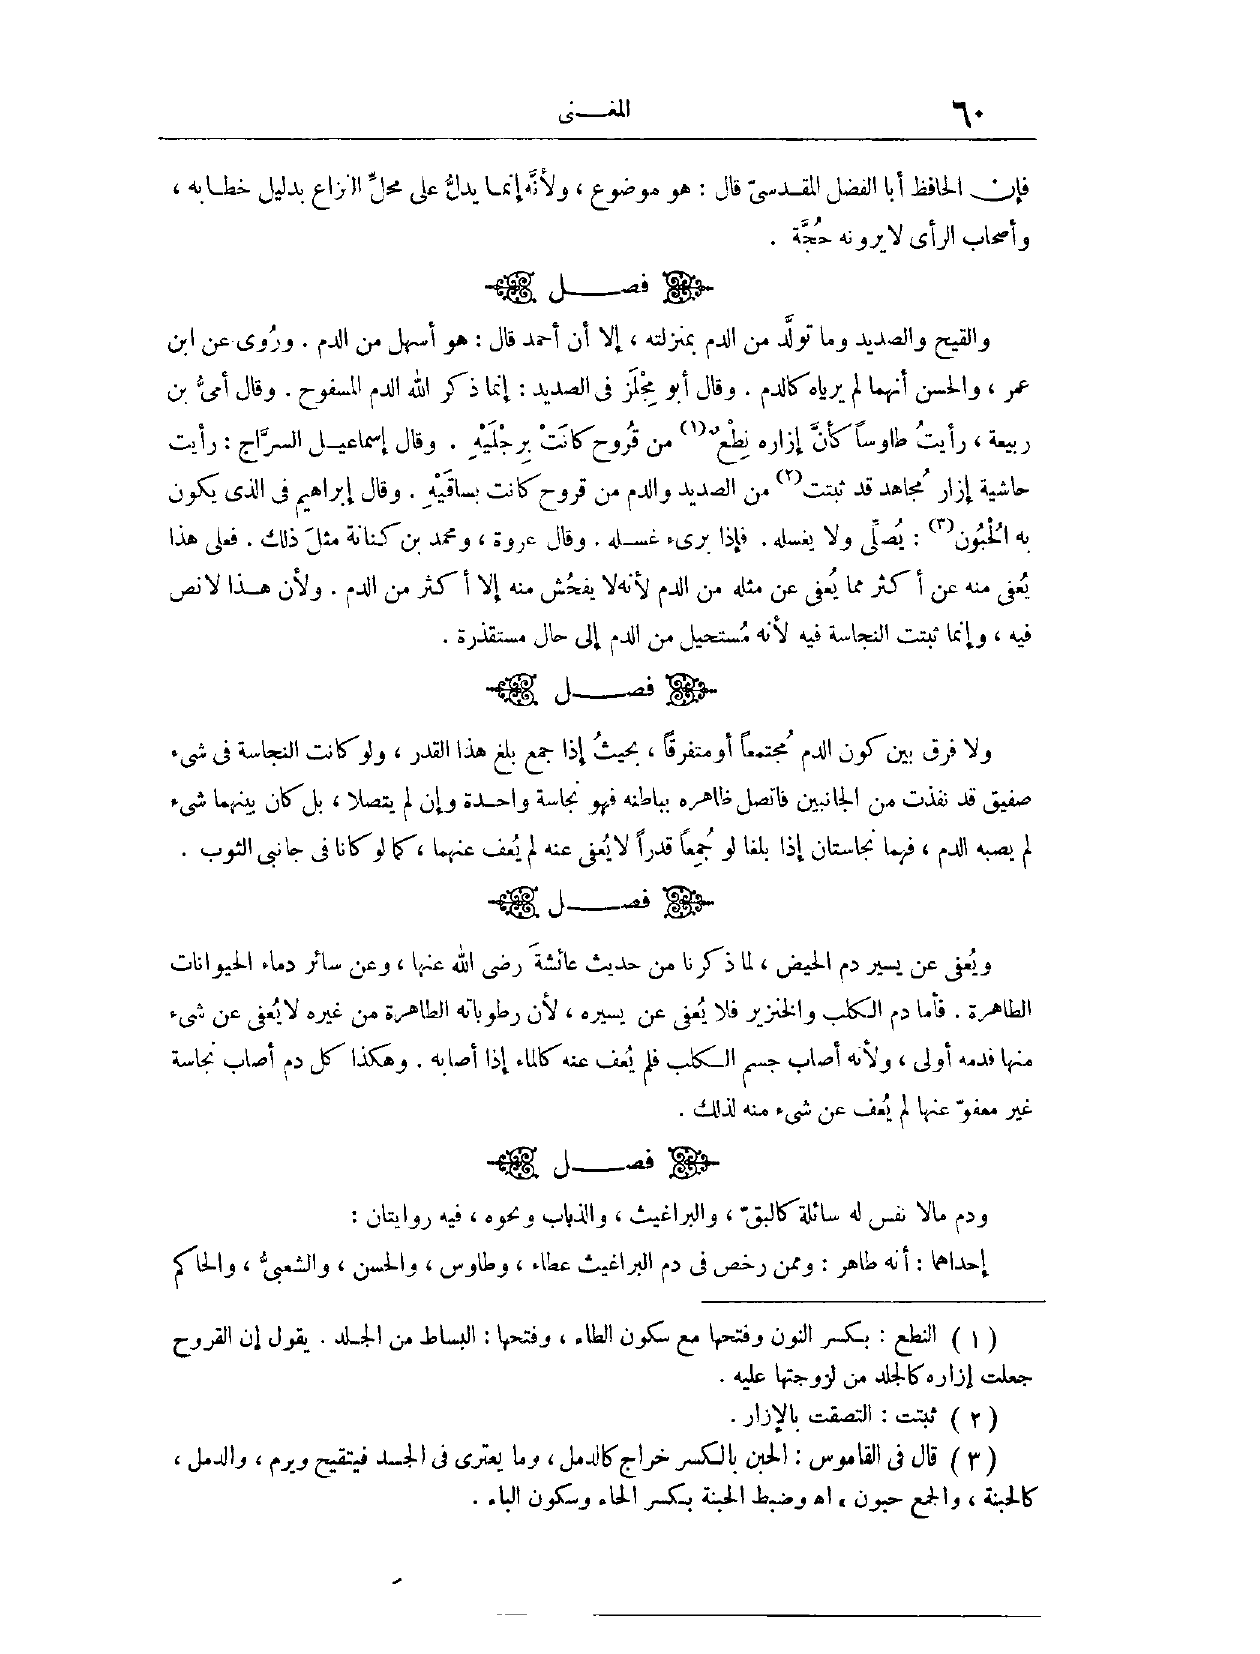 ٦٠
المغــنى
فإن الحافظ أبا الفضل المقدسىّ قال : هو موضوع ، ولأنَّه إنما يدلُّ على محلِّ النزاع بدليل خطابه ،
وأصحاب الرأى لا يرونه حُجَّة .
فصــل
والقيح والصديد وما تولَّد من الدم بمنزلته ، إلا أن أحمد قال : هو أسهل من الدم . ورُوى عن ابن
عمر ، والحسن أنهما لم يرياه كالدم . وقال أبو مِجْلَز فى الصديد : إنما ذكر الله الدم المسفوح . وقال أمىُّ بن
ربيعة ، رأيتُ طاوساً كأنَّ إزاره نِطْعٌ(١) من قُروح كانَتْ بِرِجْلَيْهِ . وقال إسماعيل السرَّاج : رأيت
حاشية إزار مُجاهد قد ثبتت(٢) من الصديد والدم من قروح كانت بساقَيْهِ . وقال إبراهيم فى الذى يكون
به الْحُبُون(٣) : يُصلِّى ولا يغسله . فإذا برىء غسله . وقال عروة ، ومحمد بن كنانة مثلَ ذلك . فعلى هذا
يُعفى منه عن أكثر مما يُعفى عن مثله من الدم لأنه لا يفحُش منه إلا أكثر من الدم . ولأن هذا لا نص
فيه ، وإنما ثبتت النجاسة فيه لأنه مُستحيل من الدم إلى حال مستقذرة .
فصــل
ولا فرق بين كون الدم مُجتمعاً أو متفرقاً ، بحيثُ إذا جمع بلغ هذا القدر ، ولو كانت النجاسة فى شىء
صفيق قد نفذت من الجانبين فاتصل ظاهره بباطنه فهو نجاسة واحدة وإن لم يتصلا ، بل كان بينهما شىء
لم يصبه الدم ، فهما نجاستان إذا بلغا لو جُمِعاً قدراً لا يُعفى عنه لم يُعف عنهما ، كما لو كانا فى جانبى الثوب .
فصــل
ويُعفى عن يسير دم الحيض ، لما ذكرنا من حديث عائشةَ رضى الله عنها ، وعن سائر دماء الحيوانات
الطاهرة . فأما دم الكلب والخنزير فلا يُعفى عن يسيره ، لأن رطوباته الطاهرة من غيره لا يُعفى عن شىء
منها فدمه أولى ، ولأنه أصاب جسم الكلب فلم يُعف عنه كالماء إذا أصابه . وهكذا كل دم أصاب نجاسة
غير معفوّ عنها لم يُعف عن شىء منه لذلك .
فصــل
ودم مالا نفس له سائلة كالبقّ ، والبراغيث ، والذباب ونحوه ، فيه روايتان :
إحداها : أنه طاهر : وممن رخص فى دم البراغيث عطاء ، وطاوس ، والحسن ، والشعبىُّ ، والحاكم
( ١ ) النطع : بكسر النون وفتحها مع سكون الطاء ، وفتحها : البساط من الجلد . يقول إن القروح
جعلت إزاره كالجلد من لزوجتها عليه .
( ٢ ) ثبتت : التصقت بالإزار .
( ٣ ) قال فى القاموس : الحبن بالكسر خراج كالدمل ، وما يعترى فى الجسد فيتقيح ويرم ، والدمل ،
كالحبنة ، والجمع حبون ، اه وضبط الحبنة بكسر الحاء وسكون الباء .